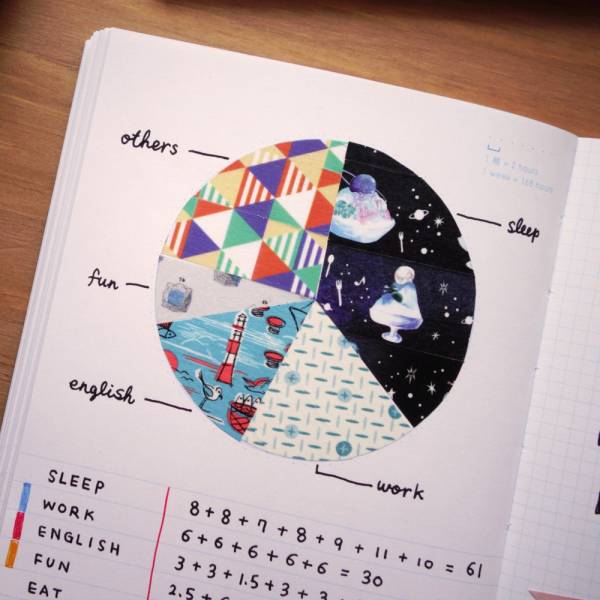 others
1 格 = 2 hours
1 week = 168 hours
sleep
fun
english
work
SLEEP
8+8+7+8+9+11+10 = 61
WORK
6+6+6+6+6 = 30
ENGLISH
3+3+1.5+3+3
FUN
2.5
EAT